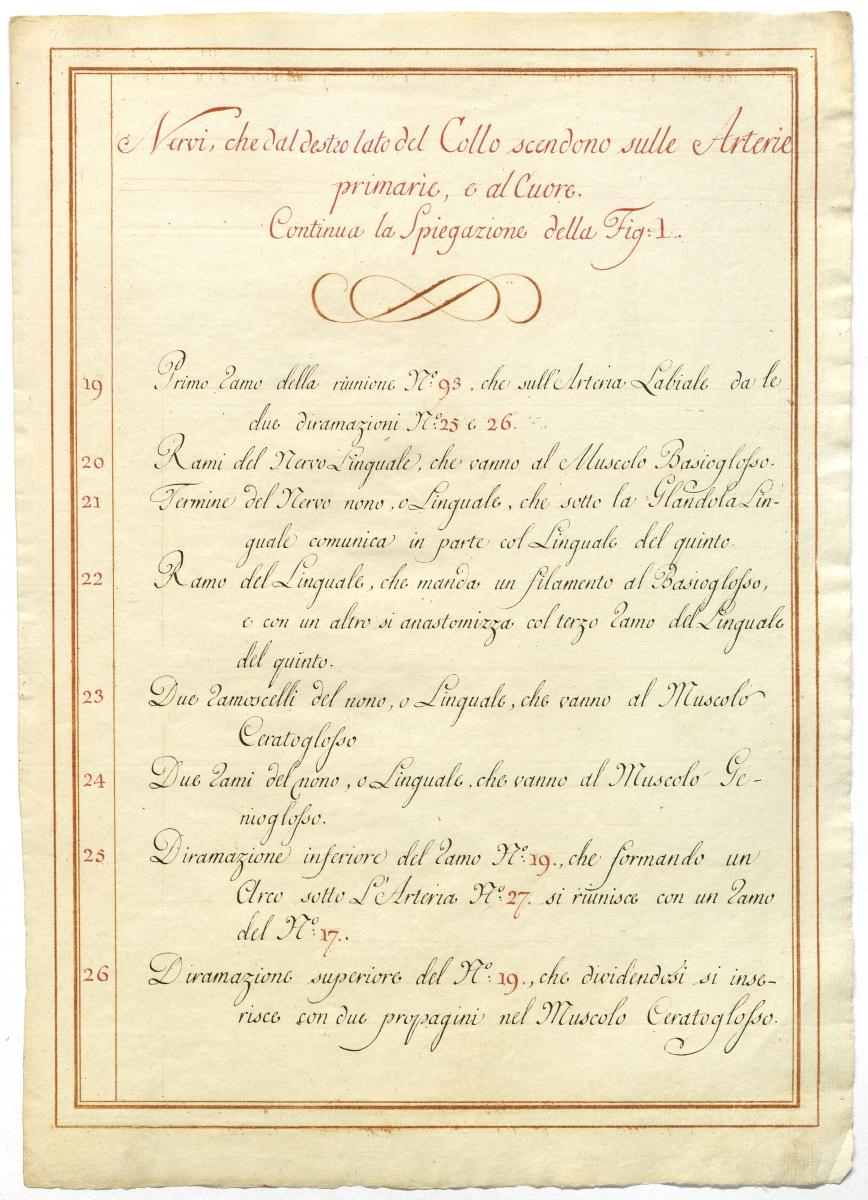 Nervi, che dal destro lato del Collo scendono sulle Arterie
primarie, e al Cuore.
Continua la Spiegazione della Fig: 1.
19 Primo ramo della riunione N.º 93, che sull'Arteria Labiale da le
due diramazioni N.º 25 e 26.
20 Rami del Nervo Linguale, che vanno al Muscolo Basioglosso.
21 Termine del Nervo nono, o Linguale, che sotto la Glandola Lin-
guale comunica in parte col Linguale del quinto.
22 Ramo del Linguale, che manda un filamento al Basioglosso,
e con un altro si anastomizza col terzo ramo del Linguale
del quinto.
23 Due ramoscelli del nono, o Linguale, che vanno al Muscolo
Ceratoglosso
24 Due rami del nono, o Linguale, che vanno al Muscolo Ge-
nioglosso.
25 Diramazione inferiore del ramo N.º 19., che formando un
Arco sotto L'Arteria N.º 27. si riunisce con un ramo
del N.º 17.
26 Diramazione superiore del N.º 19., che dividendosi si inse-
risce con due propagini nel Muscolo Ceratoglosso.